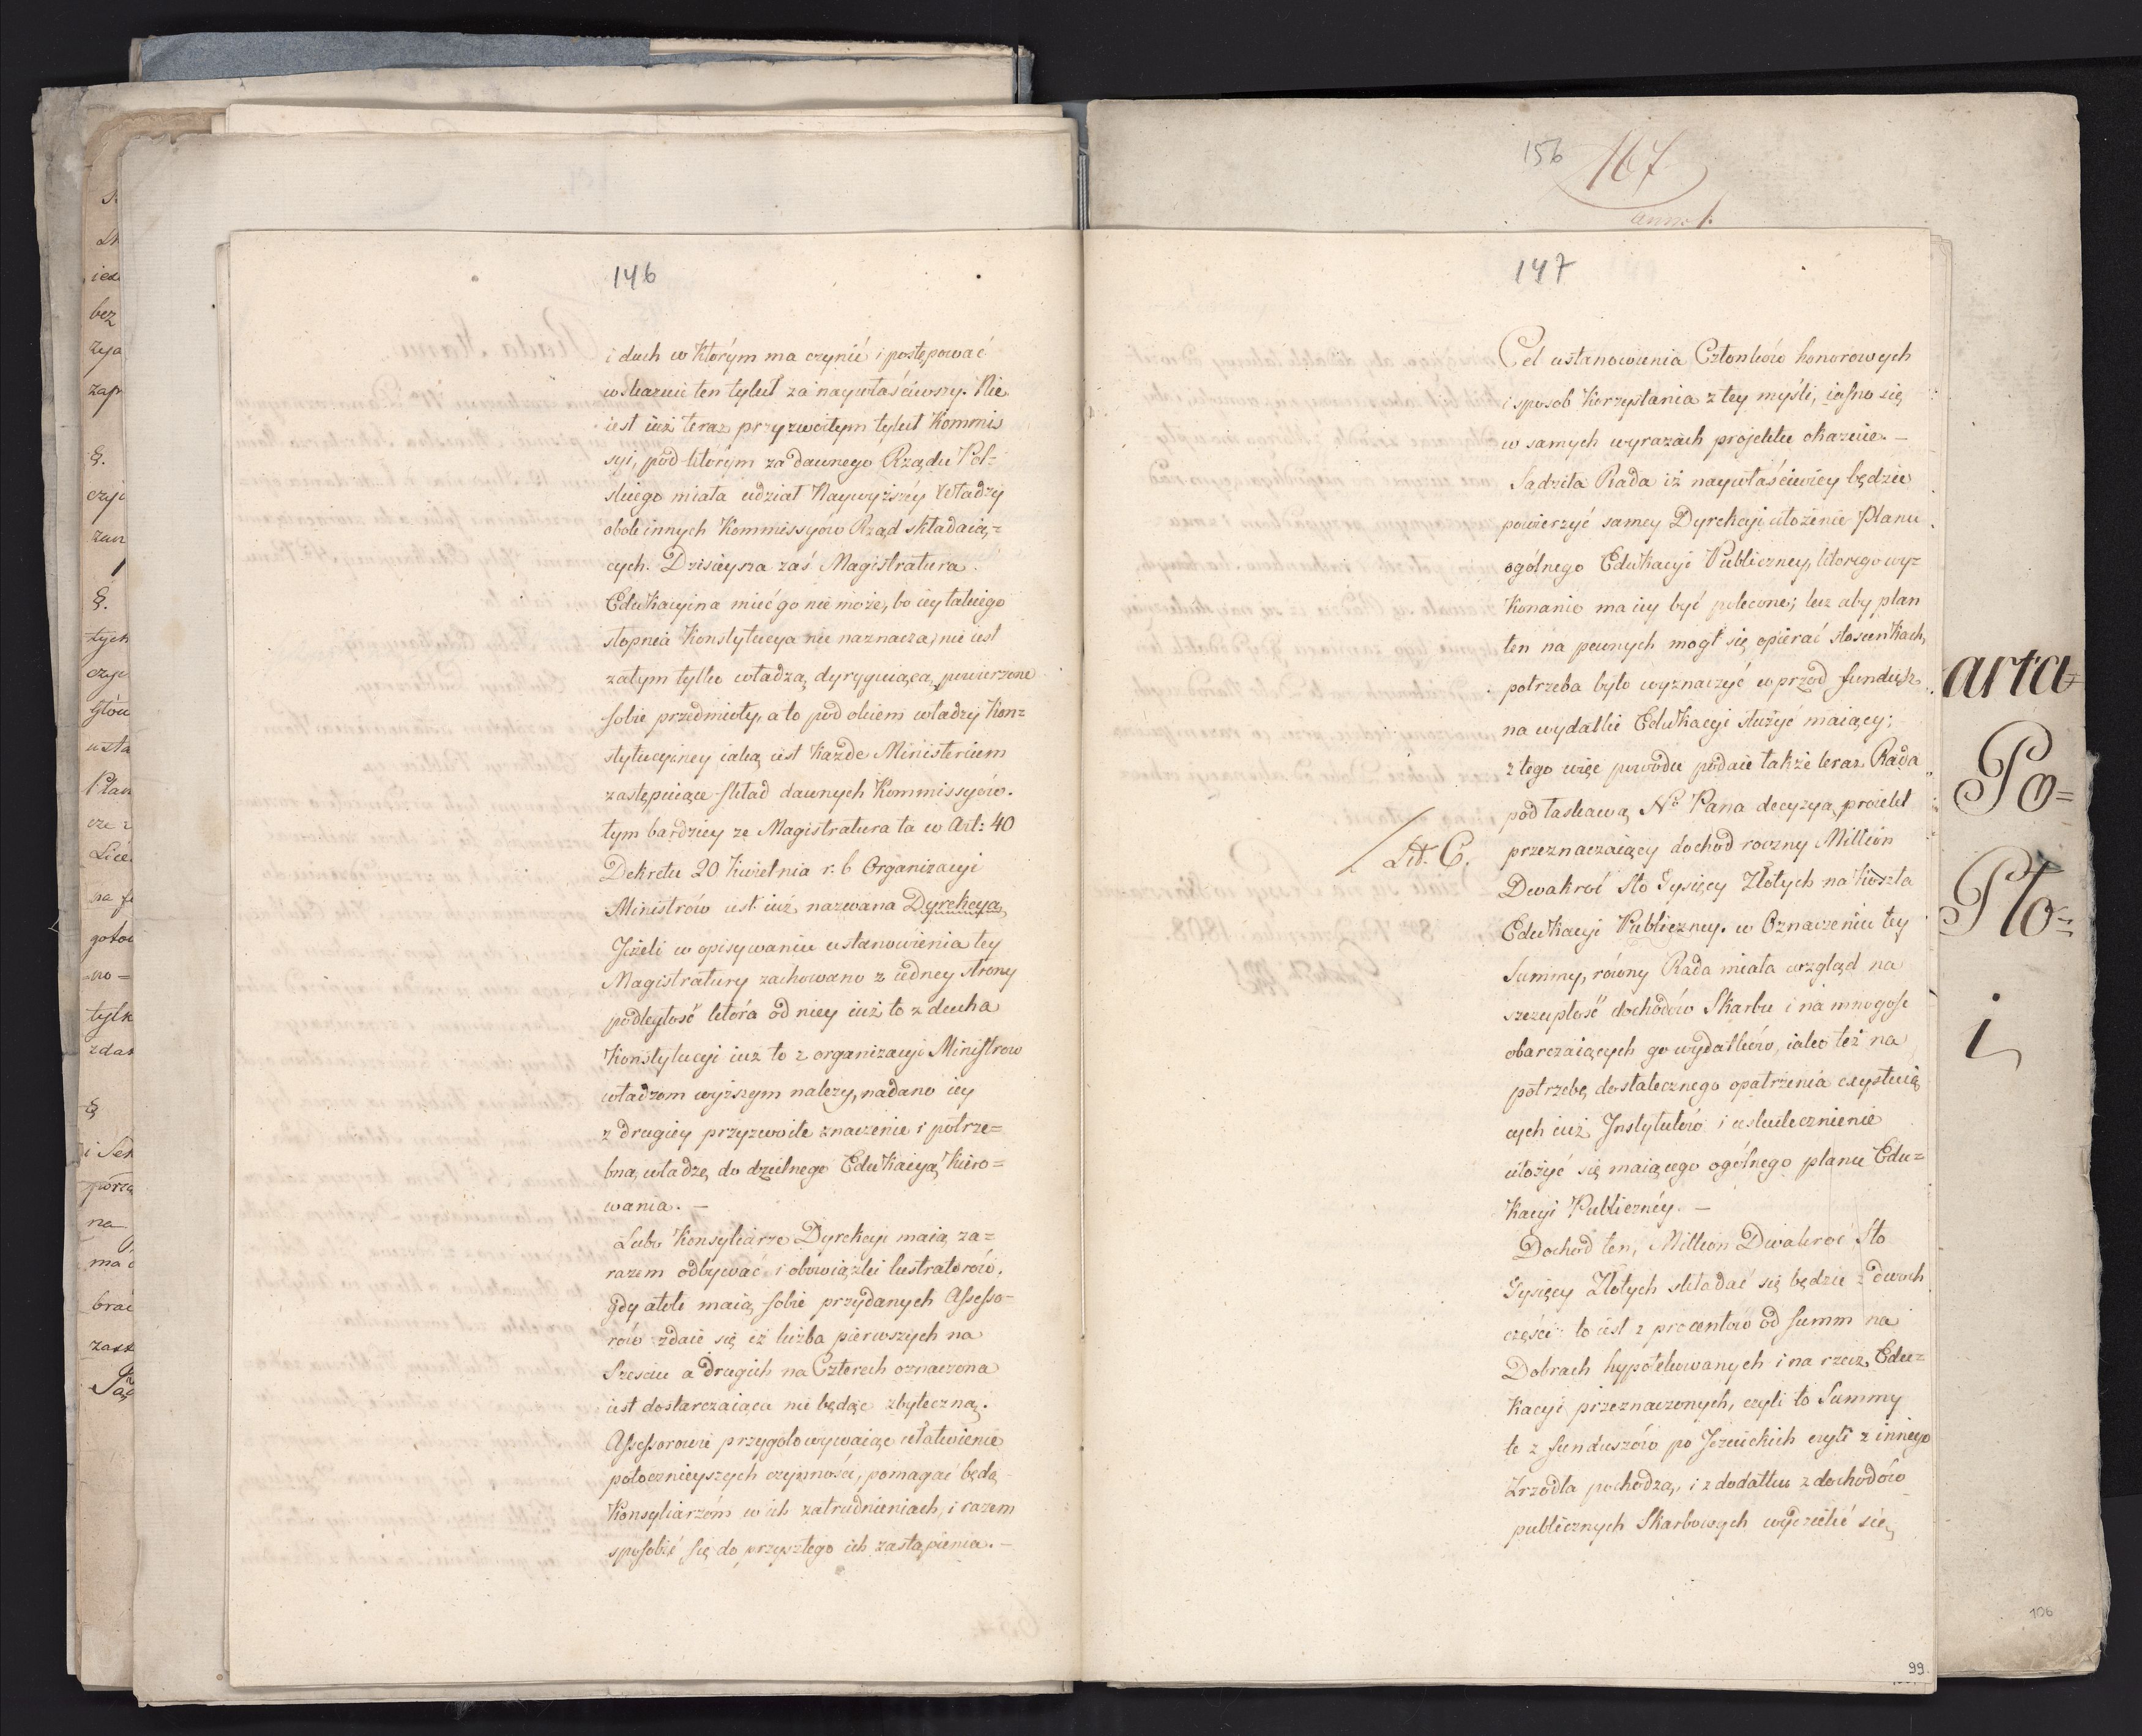 146
i duch w którym ma czynić i postępować
wskazuie ten tytuł za naywłaściwszy. Nie
iest iuż teraz przyzwoitym tytuł Kommis
syi, pod którym za dawnego Rządu Pol=
skiego miała udział Naywyższéy Władzy
obok innych Kommissyów Rząd składaią=
cych. Dzisieysza zaś Magistratura
Edukacyina mieć go nie może, bo iey takiego
stopnia Konstytucya nie naznacza, nie iest
zatym tylko władzą dyryguiącą powierzone
sobie przedmioty, a to pod okiem władzy Kon=
stytucyiney iaką iest każde Ministerium
zastępuiące skład dawnych Kommissyów.
tym bardziey że Magistratura ta w Art: 40
Dekretu 20 Kwietnia r. b Organizacyi
Ministrów iest iuż nazwana Dyrekcyą
Jeżeli w opisywaniu ustanowienia tey
Magistratury zachowano z iedney strony
podległość która od niey iuż to z ducha
Konstytucyi iuż to z organizacyi Ministrow
władzom wyższym należy, nadano iey
z drugiey przyzwoite znaczenie i potrze=
bną władzę do dzielnego Edukacyą kiero=
wania. —
Lubo Konsyliarze Dyrekcyi maią za=
razem odbywać i obowiązki lustratorów,
gdy atoli maią sobie przydanych Assesso-
rów zdaie się iż liczba pierwszych na
Sześciu a drugich na Czterech oznaczona
iest dostarczaiąca nie będąc zbyteczną.
Assessorowie przygotowywaiąc ułatwienie
potocznieyszych czynności, pomagać będą
Konsyliarzom w ich zatrudnieniach, i razem
sposobić się do przyszłego ich zastąpienia. —
156
167
147
Cel ustanowienia Członków honorowych
i sposob korzystania z tey myśli, iasno się
w samych wyrazach projektu okazuie. —
Sądziła Rada iż naywłaściwiey będzie
powierzyć samey Dyrekcyi ułożenie Planu
ogólnego Edukacyi Publiczney, którego wy=
konanie ma iey być polecone; lecz aby plan
ten na pewnych mogł się opierać stosunkach,
potrzeba było wyznaczyć wprzód fundusz
na wydatki Edukacyi służyć maiący;
z tego więc powodu podaie także teraz Rada
pod łaskawą Nº Pana decyzyą proiekt
Lit. C.
przeznaczaiący dochod roczny Million
Dwakroć Sto Tysięcy Złotych na Koszta
Edukacyi Publiczney. w Oznaczeniu tey
Summy, równy Rada miała wzgląd na
szczupłość dochodów Skarbu i na mnogość
obarczaiących go wydatków, iako też na
potrzebę dostatecznego opatrzenia exystuią
cych iuż Jnstytutów i uskutecznienie
ułożyć się maiącego ogólnego planu Edu=
kacyi Publicznéy. —
Dochod ten, Million Dwakroć Sto
Tysięcy Złotych składać się będzie z dwoch
części: to iest z procentów od summ na
Dobrach hypotekowanych i na rzecz Edu=
kacyi przeznaczonych, czyli to Summy
te z funduszów po Jezuickich czyli z innego
zrzodła pochodzą, i z dodatku z dochodów
publicznych Skarbowych wydzielić się
99
arta
Po=
Sto=
i
106